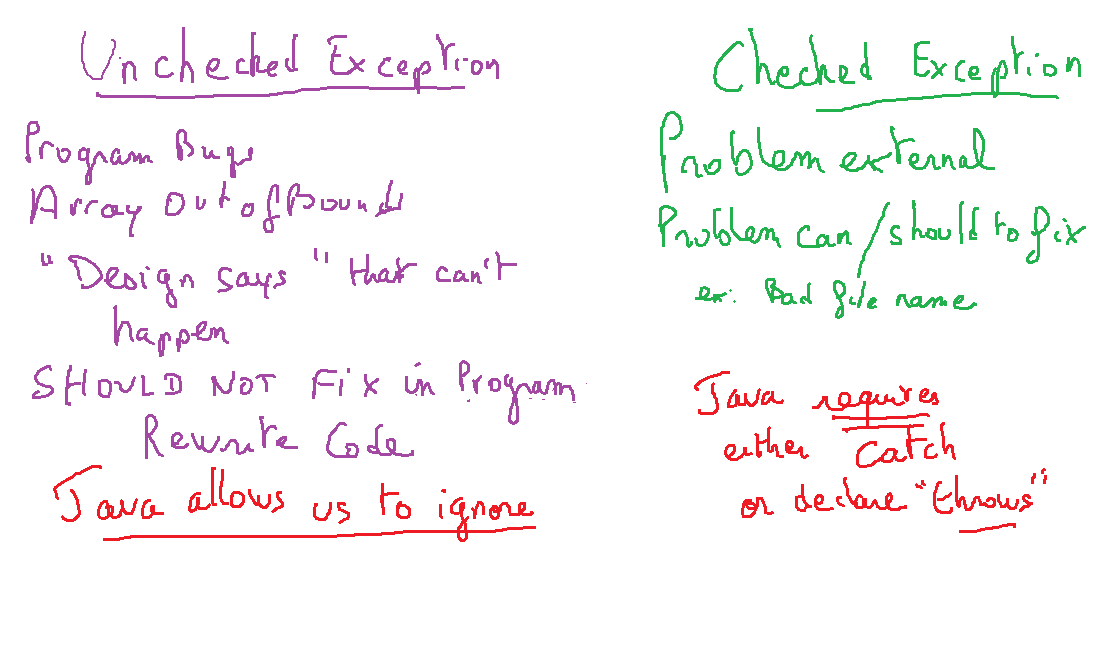 Unchecked Exception
Program Bugs
Array Out of Bounds
"Design says" that can't
happen
SHOULD NOT FIX in Program
Rewrite Code
Java allows us to ignore
Checked Exception
Problem external
Problem can/should to fix
ex: Bad file name
Java requires
either catch
or declare "throws"